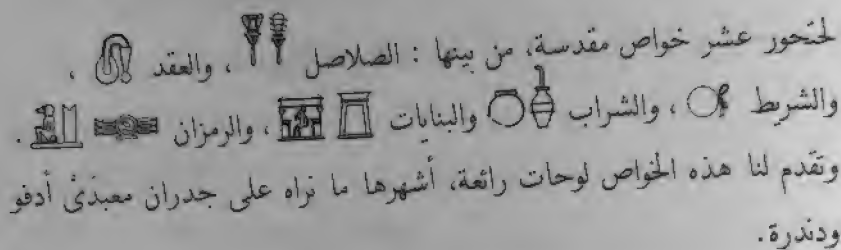 لحتحور عشر خواص مقدسة، من بينها : الصلاصل ، والعقد ،
والشريط ، والشراب والبنايات ، والرمزان .
وتقدم لنا هذه الخواص لوحات رائعة، أشهرها ما نراه على جدران معبدَىْ أدفو
ودندرة .